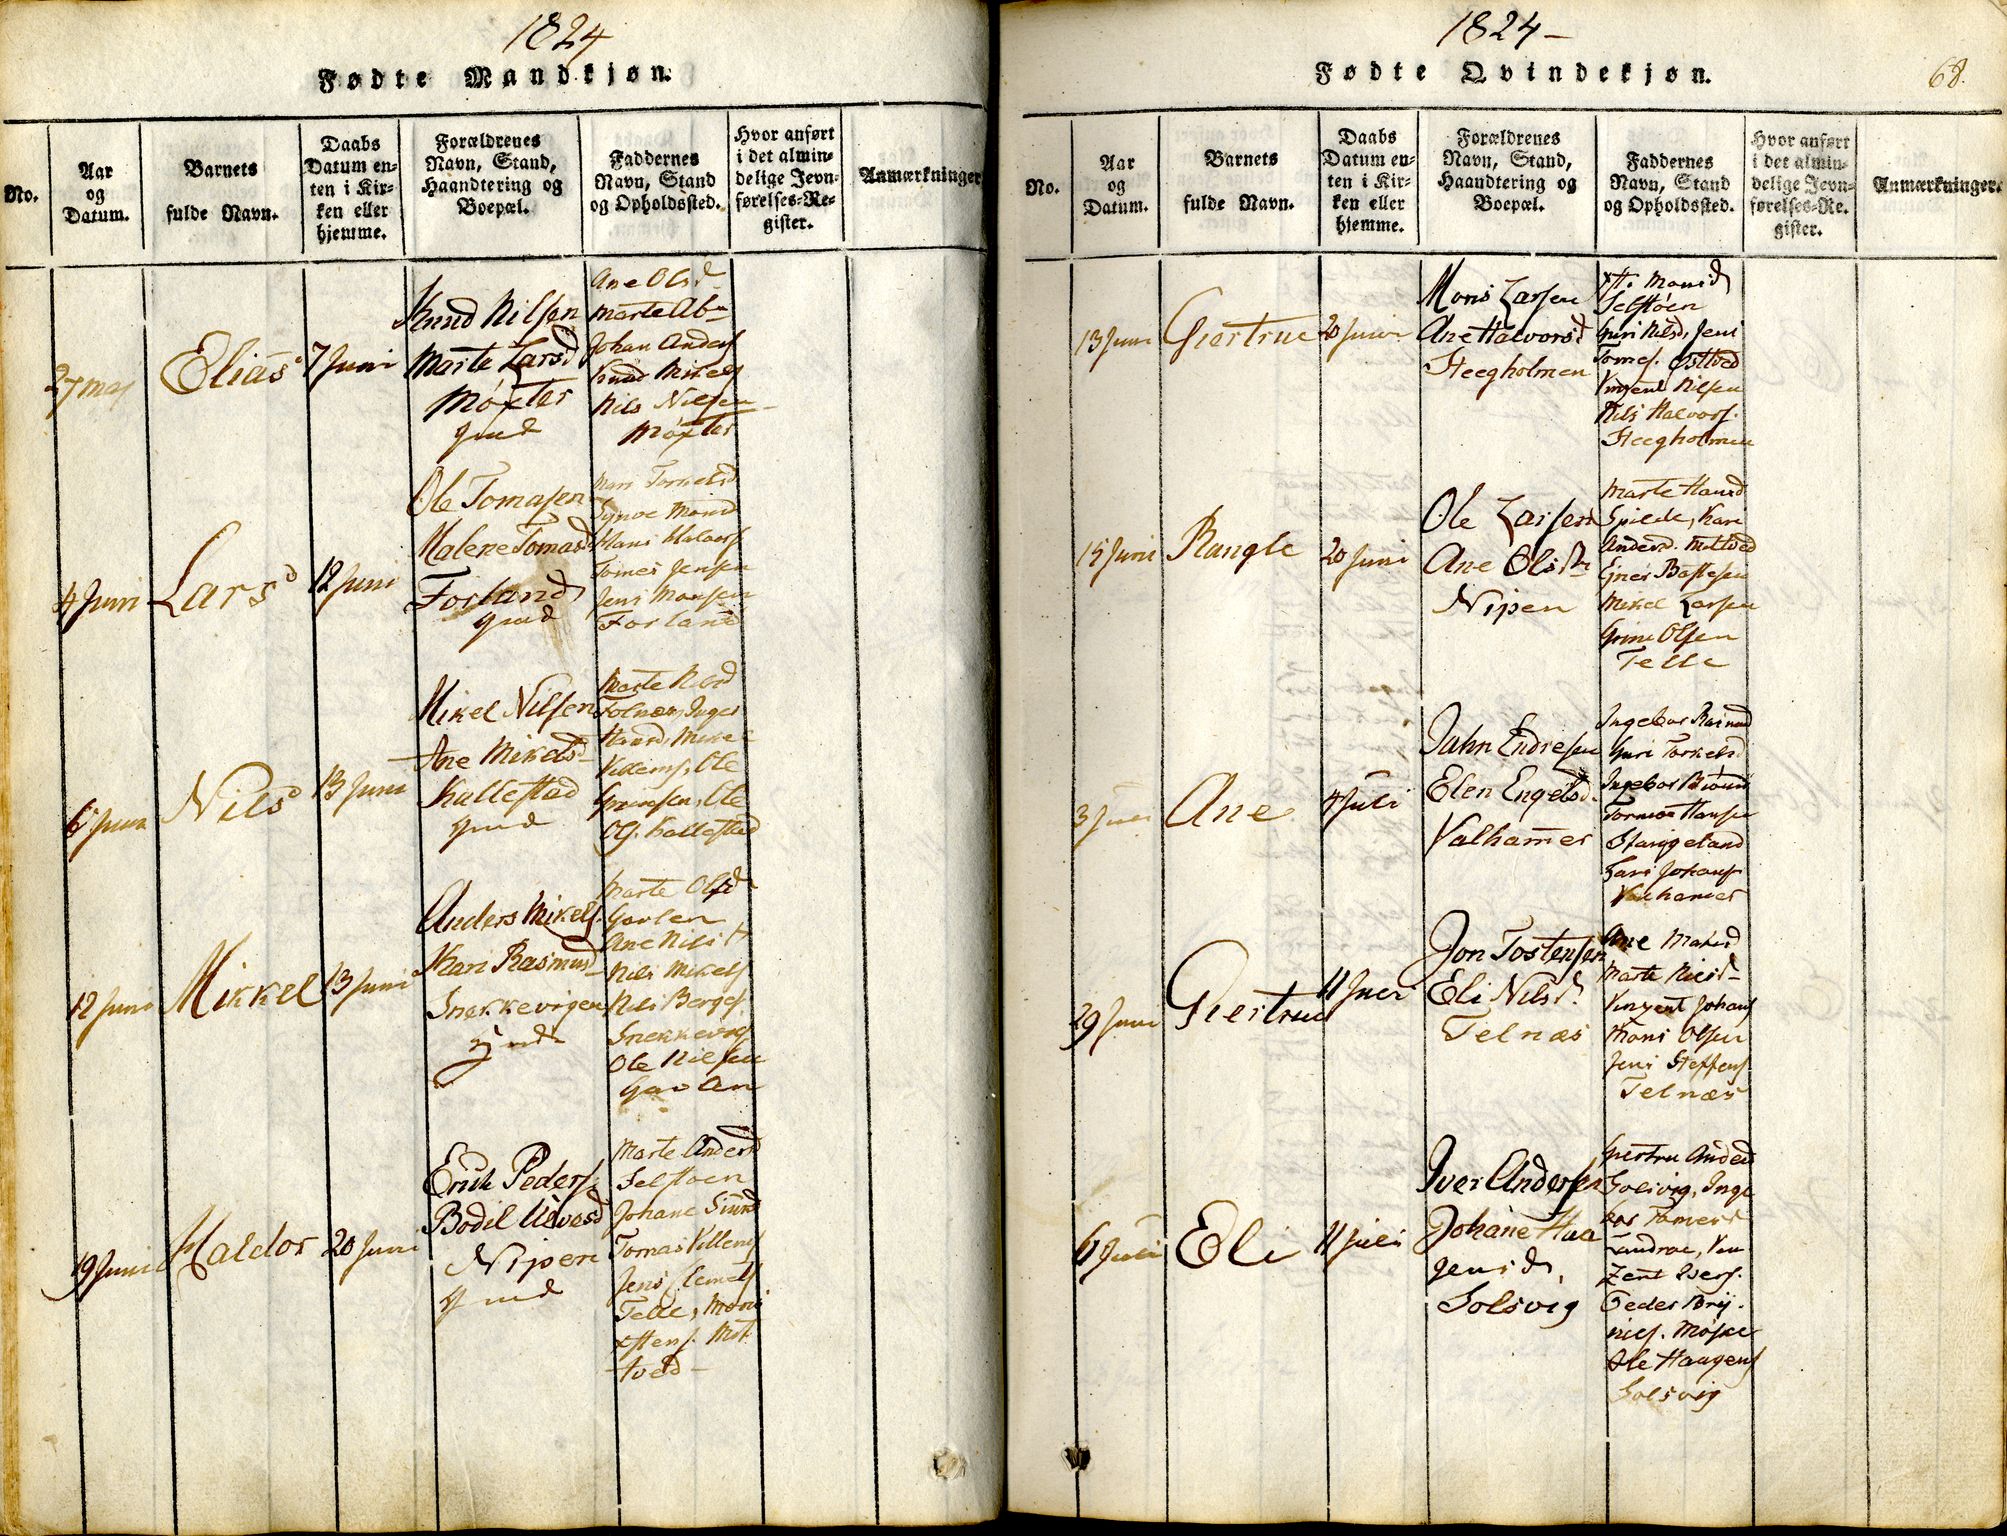 1824
Fødte Mandkjøn.
No.
Aar
og
Datum.
Barnets
fulde Navn.
Daabs
Datum en-
ten i Kir-
ken eller
hjemme.
Forældrenes
Navn, Stand,
Haandtering og
Boepæl.
Faddernes
Navn, Stand
og Opholdssted.
Hvor anført
i det almin-
delige Jevn-
førelses-Re-
gister.
Anmærkninger
27 May
Elias
7 Juni
Knud Nilsen
Marte Larsd
Møxter
gmd
Ane Olsd
Marte
Johan Anders
Knud Mikels
Nils Nilsen
Møxter
4 Juni
Lars
12 Juni
Ole Tomasen
Malene Tomasd
Forland
gmd
Synve Monsd
Hans Halvors
Tomes Jensen
Jens Monsen
Forland
6 Juni
Nils
13 Juni
Mikel Nilsen
Ane Mikelsd
Kallestad
gmd
Marte
Folnæs, Inger
Mikel
Villems, Ole
Ole
Kallestad
12 Juni
Mikkel
13 Juni
Anders Mikels.
Kari Rasmusd
Snekkevigen
gmd
Marte Olsd
Gavlen
Ane Nils
Nils Mikels
Nils Berges
Snekkevig
Ole Nilsen
Gavlen
19 Juni
Haldor
20 Juni
Erik Peders
Bodil
Nipen
gmd
Marte Andersd
Selstøen
Johane
Tomas Villems
Jens Clemets
Telle, Mons
Møt
tved
1824
Fødte Qvindekjøn.
68.
No.
Aar
og
Datum.
Barnets
fulde Navn.
Daabs
Datum en-
ten i Kir-
ken eller
hjemme.
Forældrenes
Navn, Stand,
Haandtering og
Boepæl.
Faddernes
Navn, Stand
og Opholdssted.
Hvor anført
i det almin-
delige Jevn-
førelses-Re-
gister.
Anmærkninger.
13 Juni
Giertrue
20 Juni
Mons Larsen
Ane Halvorsd
Heegholmen
Monsd
Selstøen
Guri Nilsd, Jens
Tomes. Østtved
Vinzent Nilsen
Nils Halvors.
Heegholmen
15 Juni
Rangle
20 Juni
Ole Larsen
Ane Olsdr
Nipen
Marte Hansd
Spilde, Kari
Andersd. Møttved
Mikel Larsen
Grim Olsen
Telle
3
Ane
4 Juli
Jahn Endresen
Elen Engelsd
Valhammer
Ingebor Rasmusd
Guri Torkelsd
Ingebor
Tormo Hansen
Stangeland
Lars Johans
Valhamer
29 Juni
Giertrue
11 Juli
Jon Tostensen
Eli Nilsd.
Telnæs
Ane
Marte Nilsd
Vinzent Johans
Hans Olsen
Jens Steffens
Telnæs
6 Juli
Eli
11 Juli
Iver Andersen
Johane Haa
gensd,
Solsvig
Giertru Andersd
Solsvig, Inge
bor Tomesd
Landroe, Vin
zent Ivers.
Peder Brÿ-
nils. Møster
Ole Haagens
Solsvig